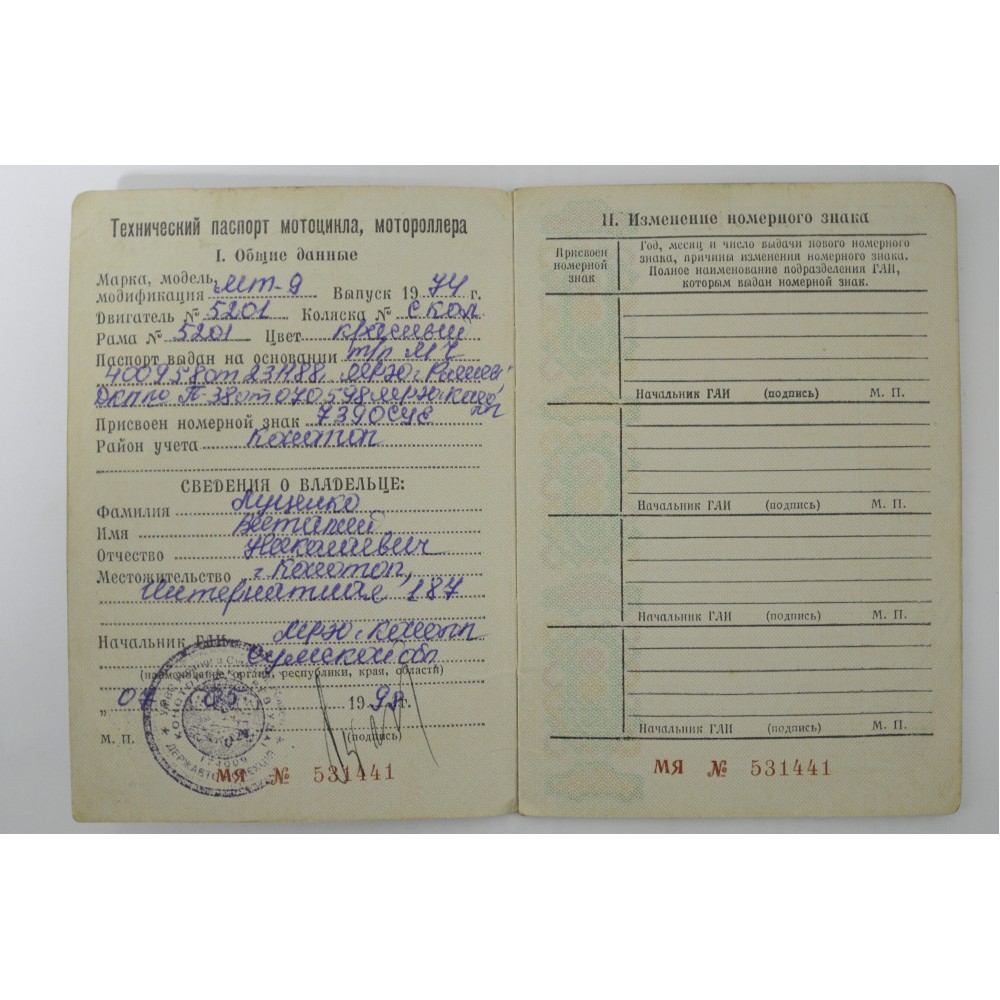 Технический паспорт мотоцикла, мотороллера
I. Общие данные
Марка, модель,
модификация МТ-9 Выпуск 1974 г.
Двигатель № 5201 Коляска № с кол
Рама № 5201 Цвет красный
Паспорт выдан на основании т/п МЧ
400958 от 231188
П-38 от 070598 МРЭО
Присвоен номерной знак 7390СУЕ
Район учета Конотоп
СВЕДЕНИЯ О ВЛАДЕЛЬЦЕ:
Фамилия Луценко
Имя Виталий
Отчество Николаевич
Местожительство г. Конотоп,
Интернатная 187
Начальник ГАИ МРЭО г. Конотоп
Сумской обл
(наименование органа, республики, края, области)
„07 05 1998г.
М. П. (подпись)
МЯ № 531441
II. Изменение номерного знака
Присвоен
номерной
знак
Год, месяц и число выдачи нового номерного
знака, причины изменения номерного знака.
Полное наименование подразделения ГАИ,
которым выдан номерной знак.
Начальник ГАИ (подпись) М. П.
Начальник ГАИ (подпись) М. П.
Начальник ГАИ (подпись) М. П.
Начальник ГАИ (подпись) М. П.
МЯ № 531441